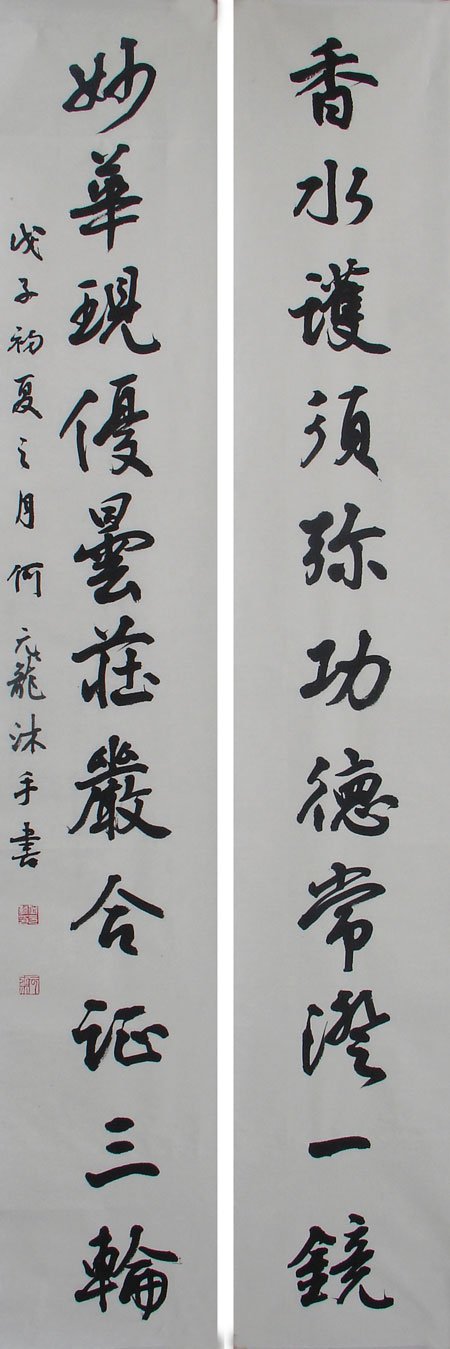 香水護須弥功德常澄一鏡
妙華現優曇莊嚴合证三輪
戊子初夏之月何元龍沐手書